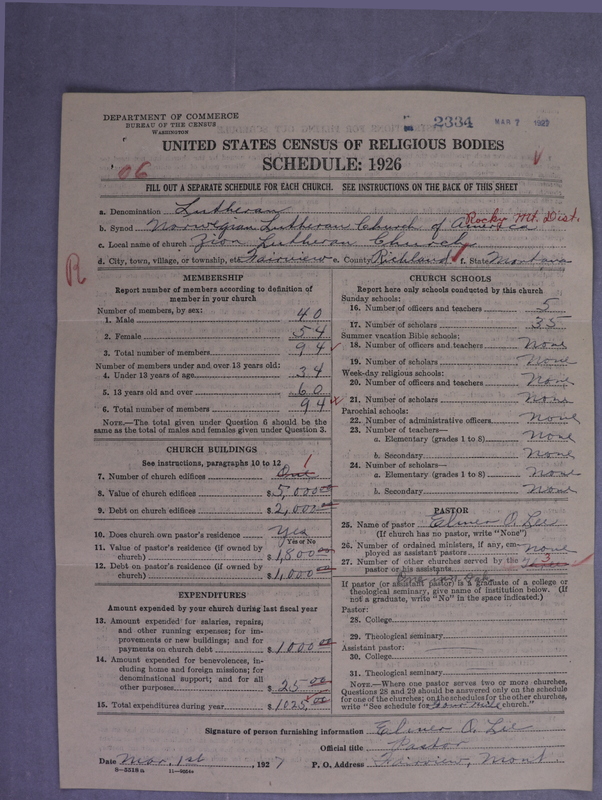 DEPARTMENT OF COMMERCE
BUREAU OF THE CENSUS
WASHINGTON
2334 MAR 7 1927
UNITED STATES CENSUS OF RELIGIOUS BODIES
SCHEDULE: 1926
06
FILL OUT A SEPARATE SCHEDULE FOR EACH CHURCH. SEE INSTRUCTIONS ON THE BACK OF THIS SHEET
a. Denomination Lutheran
Rocky Mt. Dist.
b. Synod Norwegian Lutheran Church of America
c. Local name of church Zion Lutheran Church
d. City, town, village, or township, etc. Fairview e. County Richland f. State Montana
R
MEMBERSHIP
Report number of members according to definition of member in your church
Number of members, by sex:
1. Male 40
2. Female 54
3. Total number of members 94
Number of members under and over 13 years old:
4. Under 13 years of age 34
5. 13 years old and over 60
6. Total number of members 94
NOTE.—The total given under Question 6 should be the same as the total of males and females given under Question 3.
CHURCH BUILDINGS
See instructions, paragraphs 10 to 12
7. Number of church edifices One 1
8. Value of church edifices $5,000.00
9. Debt on church edifices $2,000.00
10. Does church own pastor's residence? Yes
Yes or No
11. Value of pastor's residence (if owned by church) $1,800.00
12. Debt on pastor's residence (if owned by church) $1,000.00
EXPENDITURES
Amount expended by your church during last fiscal year
13. Amount expended for salaries, repairs, and other running expenses; for improvements or new buildings; and for payments on church debt $1000.00
14. Amount expended for benevolences, including home and foreign missions; for denominational support; and for all other purposes $25.00
15. Total expenditures during year $1025.00
CHURCH SCHOOLS
Report here only schools conducted by this church
Sunday schools:
16. Number of officers and teachers 5
17. Number of scholars 35
Summer vacation Bible schools:
18. Number of officers and teachers None
19. Number of scholars None
Week-day religious schools:
20. Number of officers and teachers None
21. Number of scholars None
Parochial schools:
22. Number of administrative officers None
23. Number of teachers—
a. Elementary (grades 1 to 8) None
b. Secondary None
24. Number of scholars—
a. Elementary (grades 1 to 8) None
b. Secondary None
PASTOR
25. Name of pastor Elmer O. Lee
(If church has no pastor, write "None")
26. Number of ordained ministers, if any, employed as assistant pastors None
27. Number of other churches served by the pastor or his assistants Three 3
If pastor (or assistant pastor) is a graduate of a college or theological seminary, give name of institution below. (If not a graduate, write "No" in the space indicated.)
Pastor:
28. College
29. Theological seminary
Assistant pastor:
30. College
31. Theological seminary
NOTE.—Where one pastor serves two or more churches, Questions 28 and 29 should be answered only on the schedule for one of the churches; on the schedules for the other churches, write "See schedule for church."
Signature of person furnishing information Elmer O. Lee
Official title Pastor
Date Mar. 1st, 1927 P. O. Address Fairview, Mont.